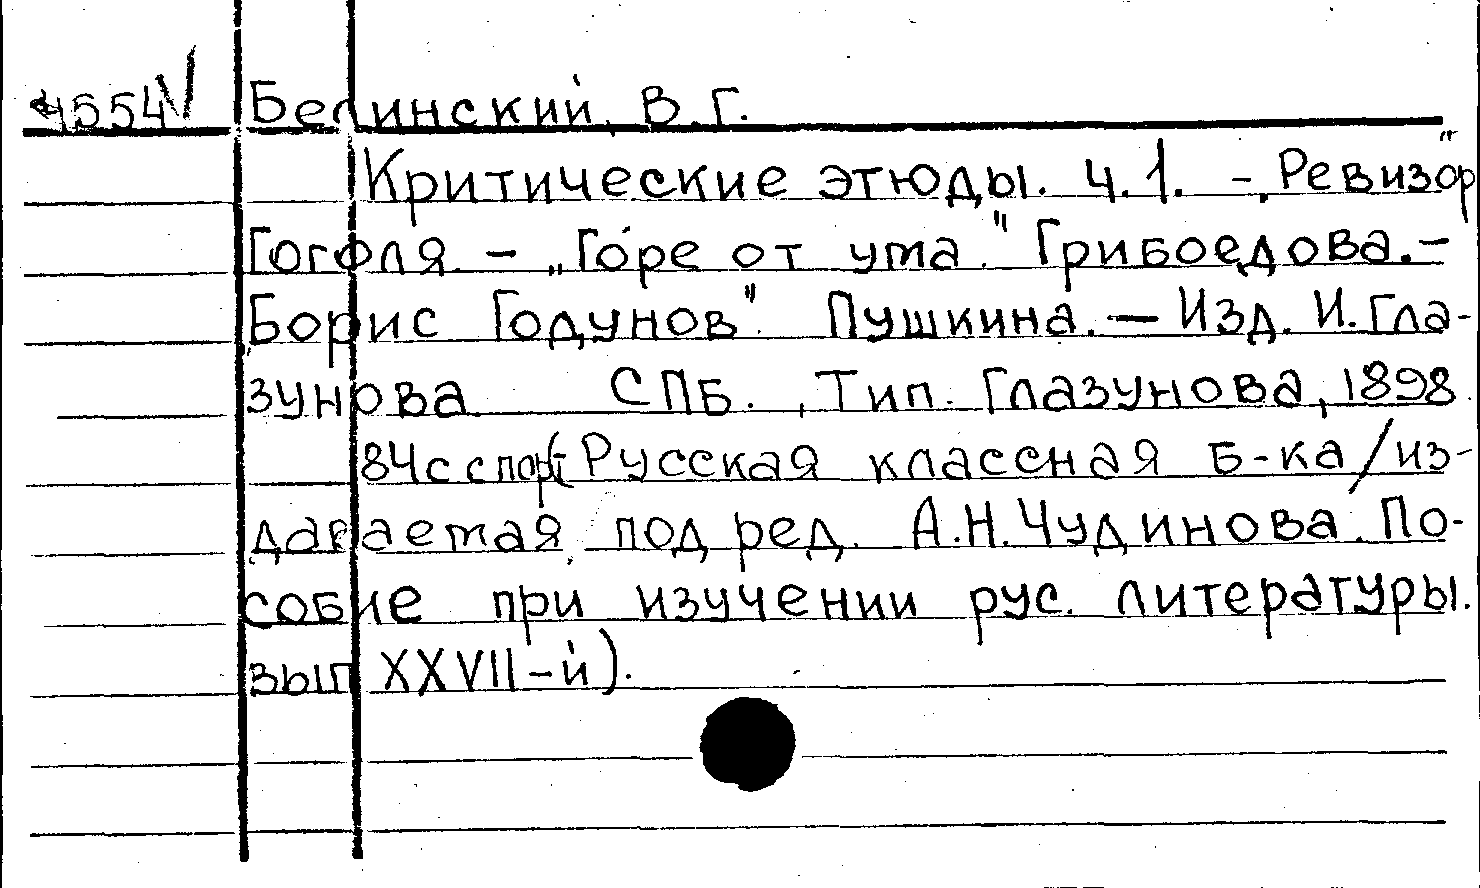 4554 V Белинский, В.Г.
Критические этюды. ч.1. - „Ревизор"
Гоголя. - „Горе от ума." Грибоедова. -
Борис Годунов". Пушкина. - Изд. И. Гла-
зунова СПБ., Тип. Глазунова, 1898.
84с с порт (Русская классная б-ка/из-
даваемая под ред. А.Н. Чудинова. По-
собие при изучении рус. литературы.
вып XXVII-й).